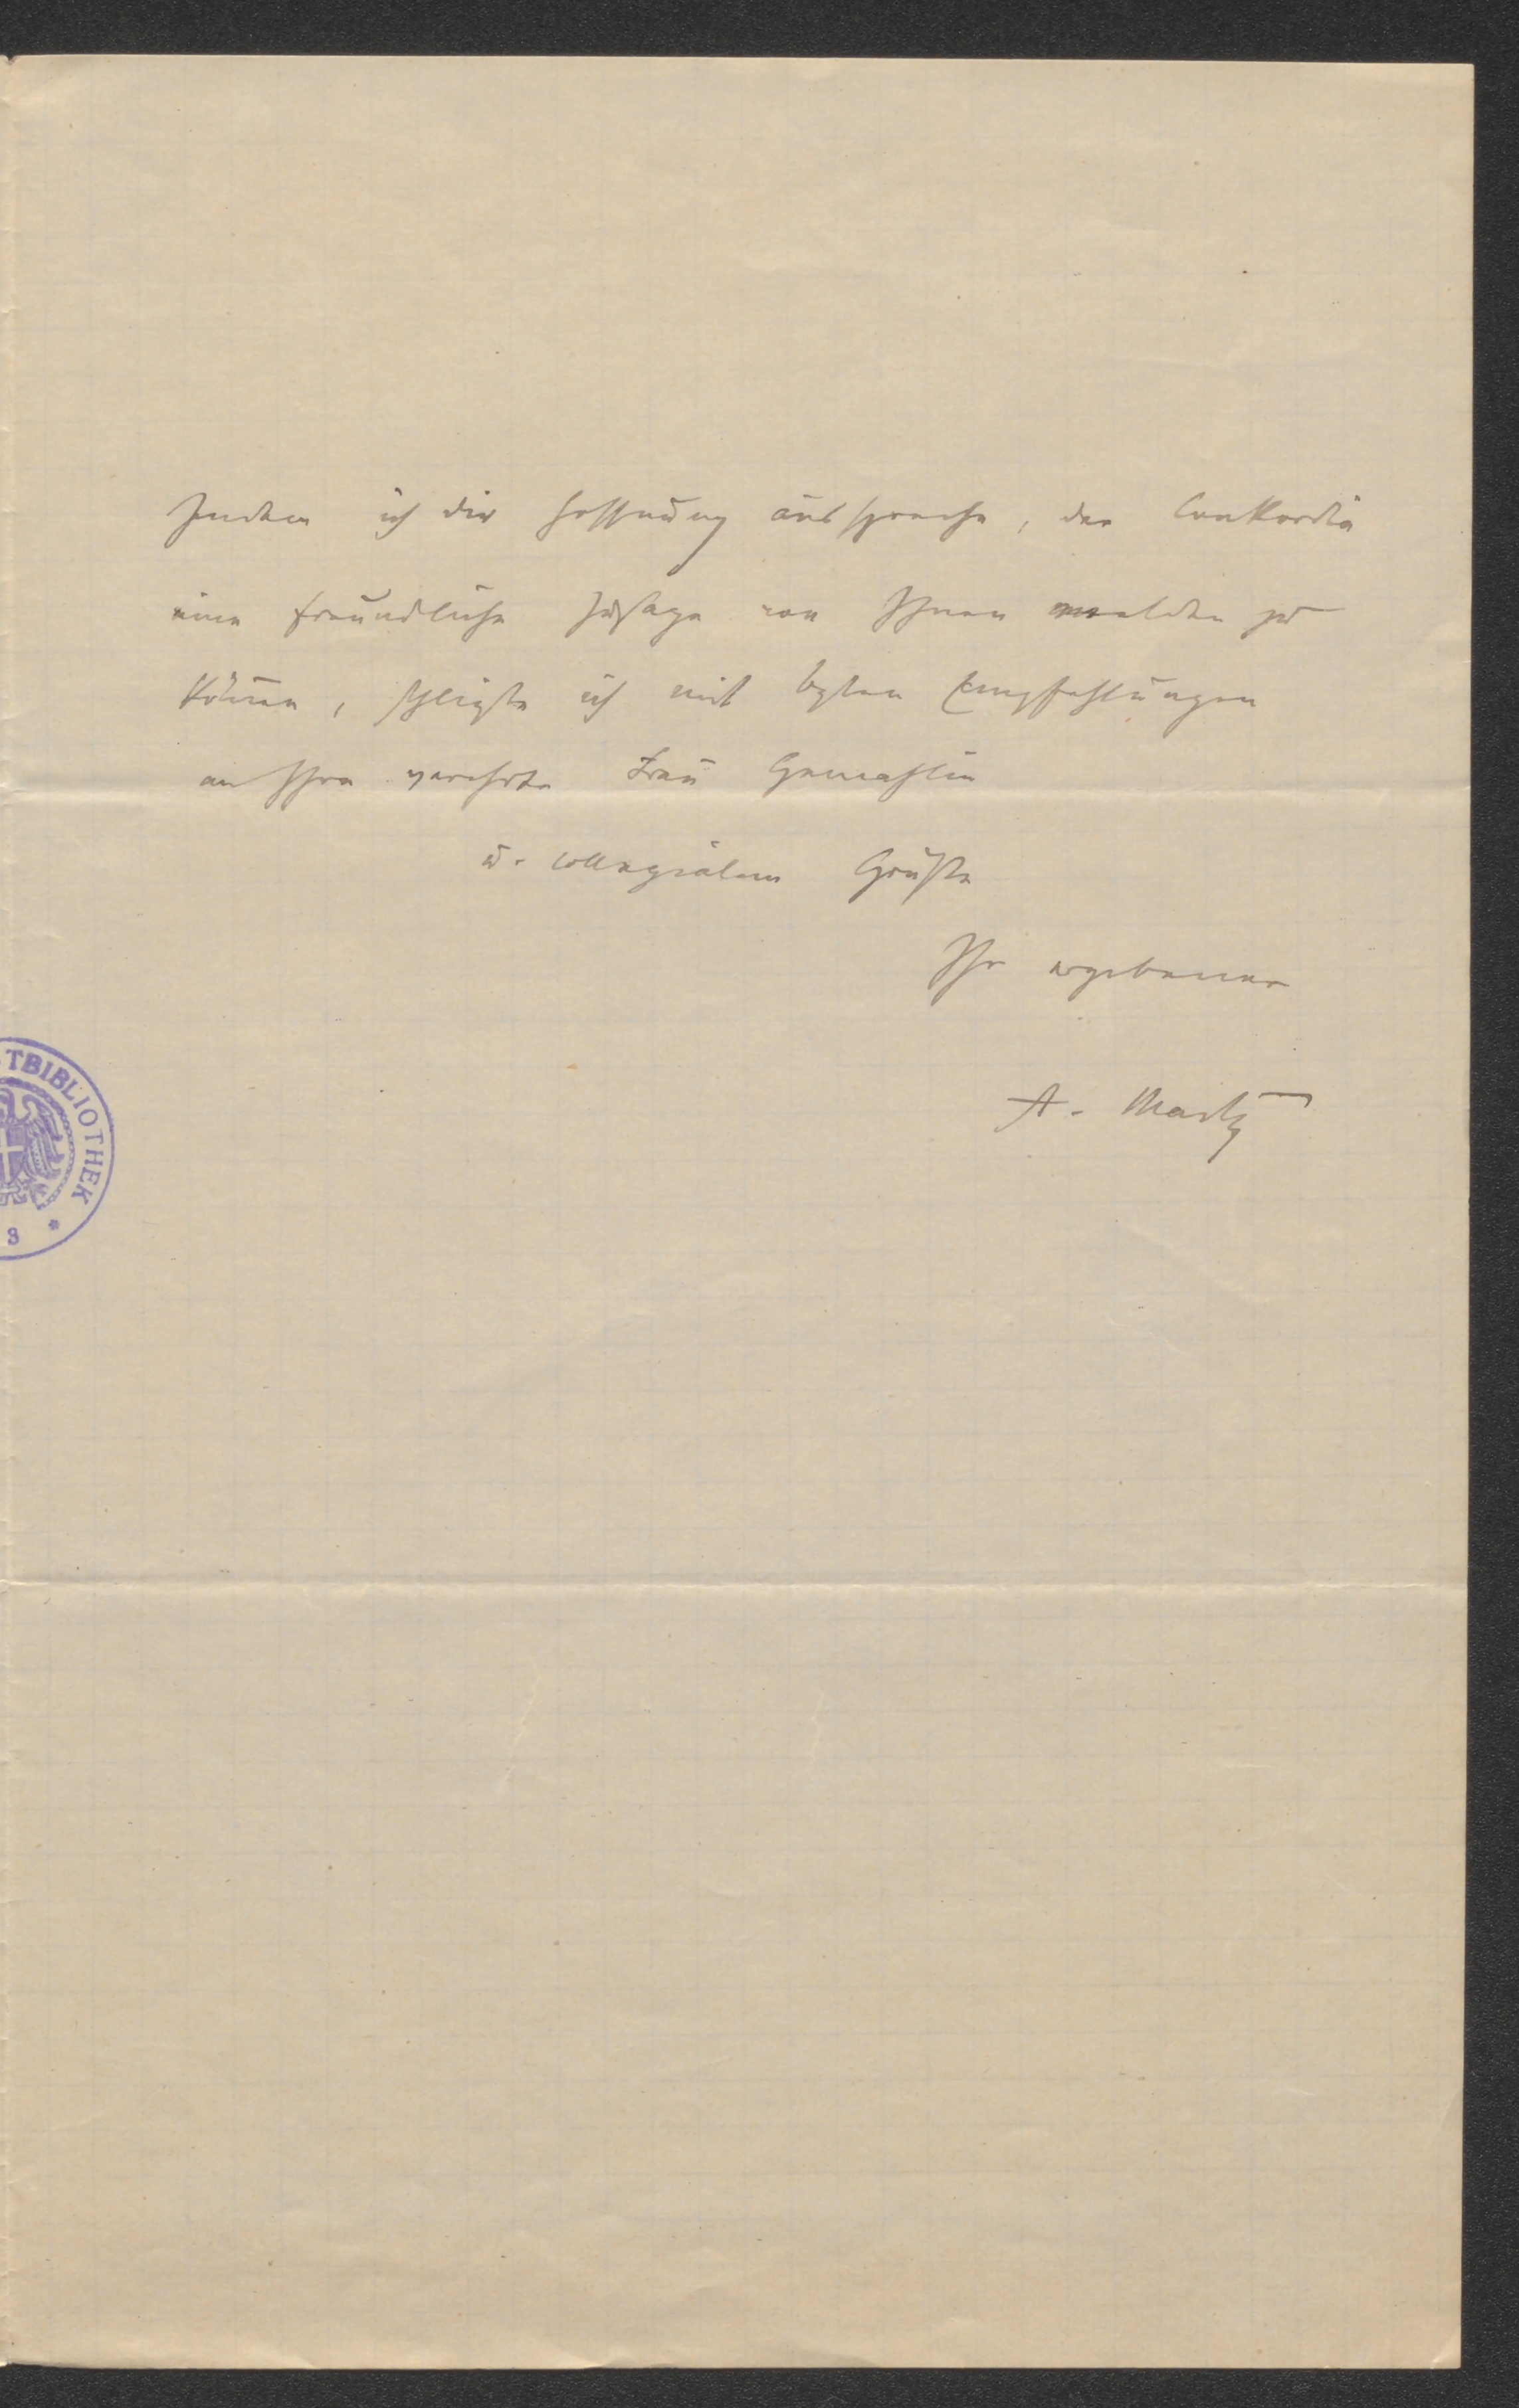 Indem ich die Hoffnung ausspreche, der Conkordia
eine freundliche Zusage von Ihnen melden zu
können, schließe ich mit besten Empfehlungen
an Ihre verehrte Frau Gemahlin
u. collegialem Gruße
Ihr ergebener
A. Marty
TBIBLIOTHEK
3 *